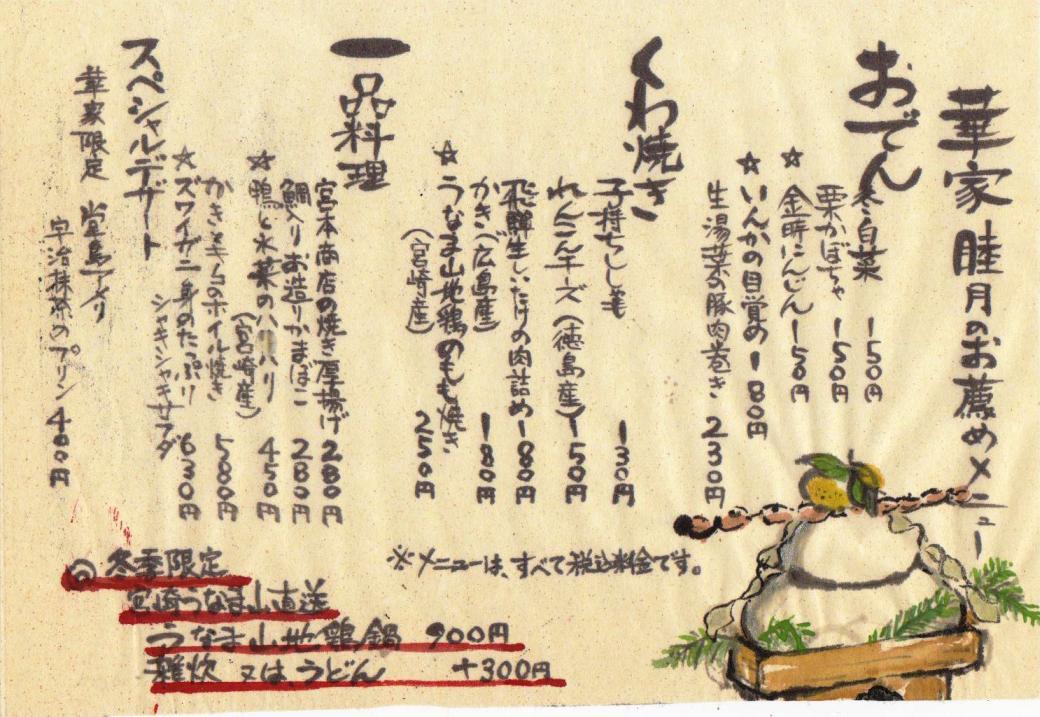 華家 睦月のお薦めメニュー
おでん
冬白菜 150円
栗かぼちゃ 150円
☆金時にんじん 150円
☆いんかの目覚め 180円
生湯葉の豚肉巻き 230円
くわ焼き
子持ちししゃも 130円
れんこんチーズ(徳島産) 150円
飛騨生しいたけの肉詰め 180円
かき(広島産) 180円
☆うなま山地鶏のもも焼き 250円
(宮崎産)
一品料理
宮本商店の焼き厚揚げ 280円
鯛入りお造りかまぼこ 280円
☆鴨と水菜のハリハリ 450円
(宮崎産)
かきとキノコのホイル焼き 580円
☆ズワイガニ身のたっぷり
シャキシャキサラダ 630円
スペシャルデザート
華家限定 堂島
宇治抹茶のプリン 400円
※メニューは、すべて税込料金です。
◎冬季限定
宮崎うなま山直送
うなま山地鶏鍋 900円
雑炊 又は、うどん +300円